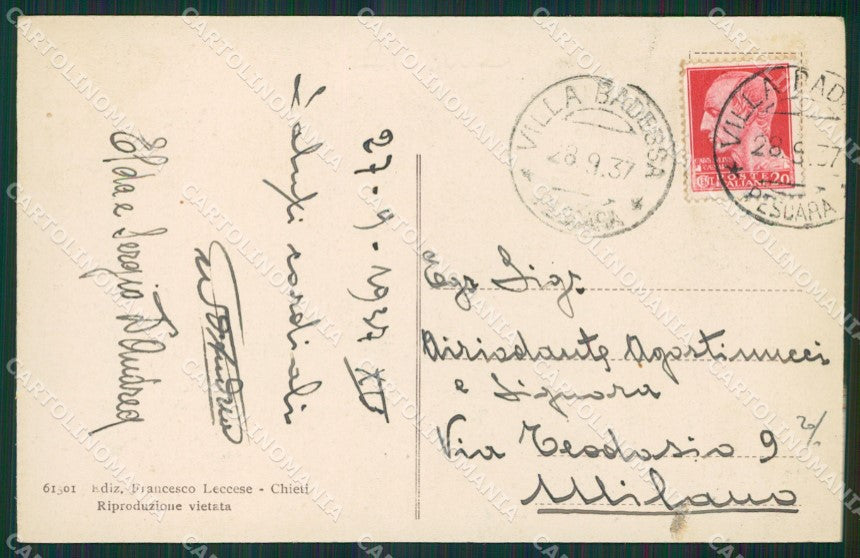 27-9-1937 XV
Saluti cordiali
Elda e Sergio D'Andrea
61301 Ediz. Francesco Leccese - Chieti
Riproduzione vietata
VILLA BADESSA
28.9.37
PESCARA
VILLA BADE
28.9.37
PESCARA
POSTE
ITALIANE
20
Egr. Sigr
Agostinucci
e Signora
Via Teodosio 9
Milano
CARTOLINOMANIA